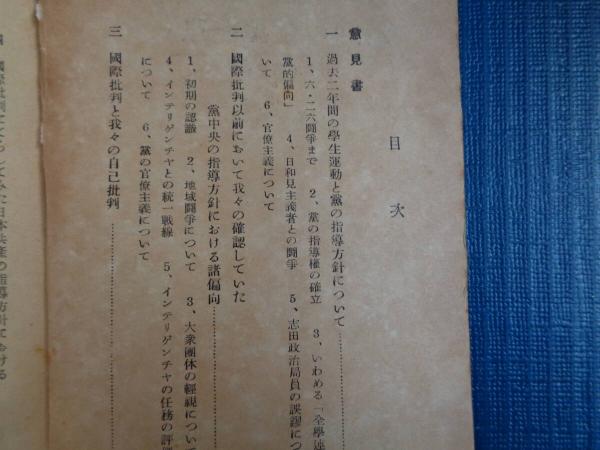 目次
意見書
一 過去二年間の學生運動と黨の指導方針について
1、六・二六闘爭まで 2、黨の指導權の確立 3、いわゆる「全學連
黨的偏向」 4、日和見主義者との闘爭 5、志田政治局員の誤謬につ
いて 6、官僚主義について
二 國際批判以前において我々の確認していた
黨中央の指導方針における諸偏向
1、初期の認識 2、地域闘爭について 3、大衆團体の輕視につい
4、インテリゲンチャとの統一戰線 5、インテリゲンチャの任務の評
について 6、黨の官僚主義について
三 國際批判と我々の自己批判
國際批判にてらしてみた日本共産の指導方針における